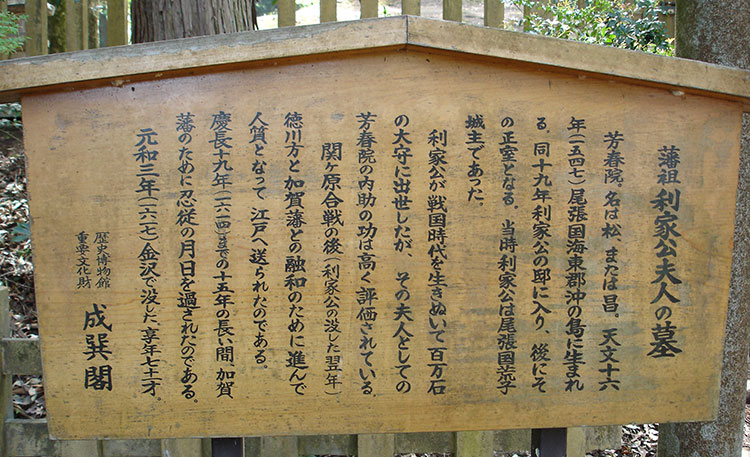 藩祖 利家公夫人の墓
芳春院。名は松、または昌。天文十六
年(一五四七)尾張国海東郡沖の島に生まれ
る。同十九年利家公の邸に入り、後にそ
の正室となる。当時利家公は尾張国荒子
城主であった。
利家公が戦国時代を生きぬいて百万石
の大守に出世したが、その夫人としての
芳春院の内助の功は高く評価されている。
関ヶ原合戦の後(利家公の没した翌年)
徳川方と加賀藩との融和のために進んで
人質となって江戸へ送られたのである。
慶長十九年(一六一四)までの十五年の長い間、加賀
藩のために忍従の月日を過されたのである。
元和三年(一六一七)金沢で没した。享年七十一才。
歴史博物館
重要文化財
成巽閣